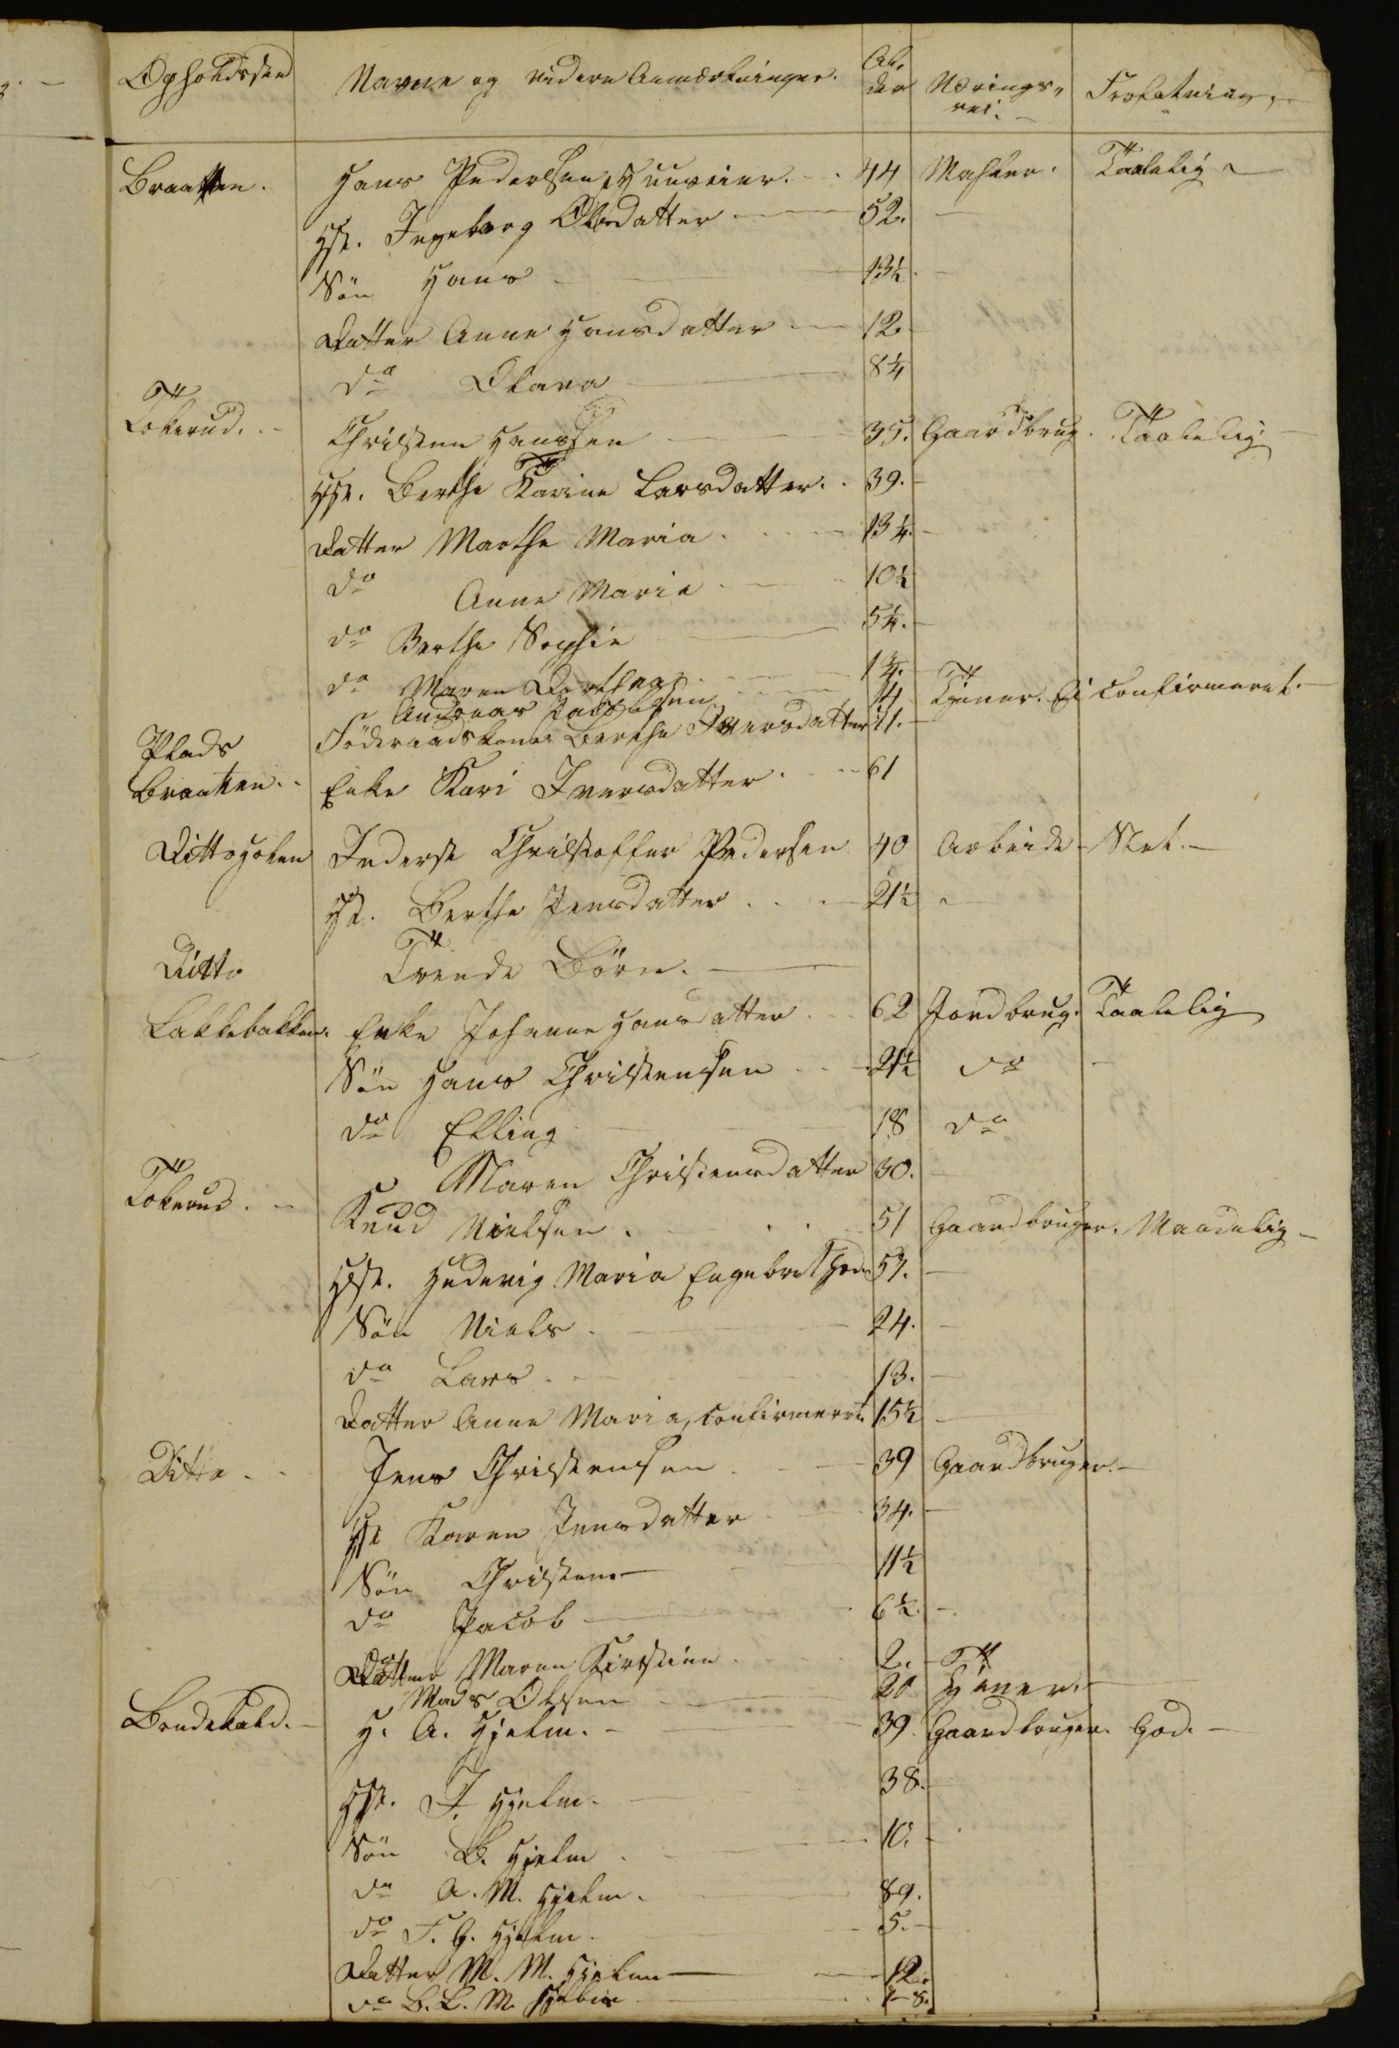 Opholdssted Navne og videre Anmærkninger. Al-der Nærings-vei. Forfatning.
Braatten. Hans Pedersen, Huuseier. 44 Mahler. Taalelig
Hst. Ingeborg Olsdatter 52.
Søn Hans 13½
Datter Anne Hansdatter 12.
do Olava 8¼
Tokerud. Christen Hanssen 35. Gaardbrug. Taalelig.
Hst. Berthe Karine Larsdatter. 39.
Datter Marthe Maria 13¼.
do Anne Marie 10½
do Berthe Sophie 5¼.
do Maren Dorthea 1¼.
Andreas Jacobsen 14 Tjener. Ei confirmeret.
Føderaadskone Berthe Iversdatter 71.
Plads
Braaten. Enke Kari Iversdatter 61
Ditto Inderst Christoffer Pedersen 40 Arbeide Slet.
Hst. Berthe Jensdatter 21½
Ditto Trende Børn.
Lakkebakken. Enke Johanne Hansdatter 62 Jordbrug. Taalelig
Søn Hans Christensen 21½ do
do Elling 18 do
Maren Christensdatter 30.
Tokerud. Knud Nielsen. 51 Gaardbruger. Maadelig
Hst. Hedevig Maria 57.
Søn Niels 24.
do Lars 13.
Datter Anne Maria, confirmeret. 15½
Ditto Jens Christensen 39 Gaardbruger.
Hst Karen Jensdatter 34.
Søn Christen 11½
do Jacob 6½.
Datter Maren Kirstine 2.
Mads Olsen 20 Tjener.
H. A. Hjelm. 39 Gaardbruger. God.
Hst. J. Hjelm. 38.
Søn B. Hjelm 10.
do A. M. Hjelm.
do F. G. Hjelm 5.
Datter M. M. Hjelm 12.
do B. L. M. Hjelm